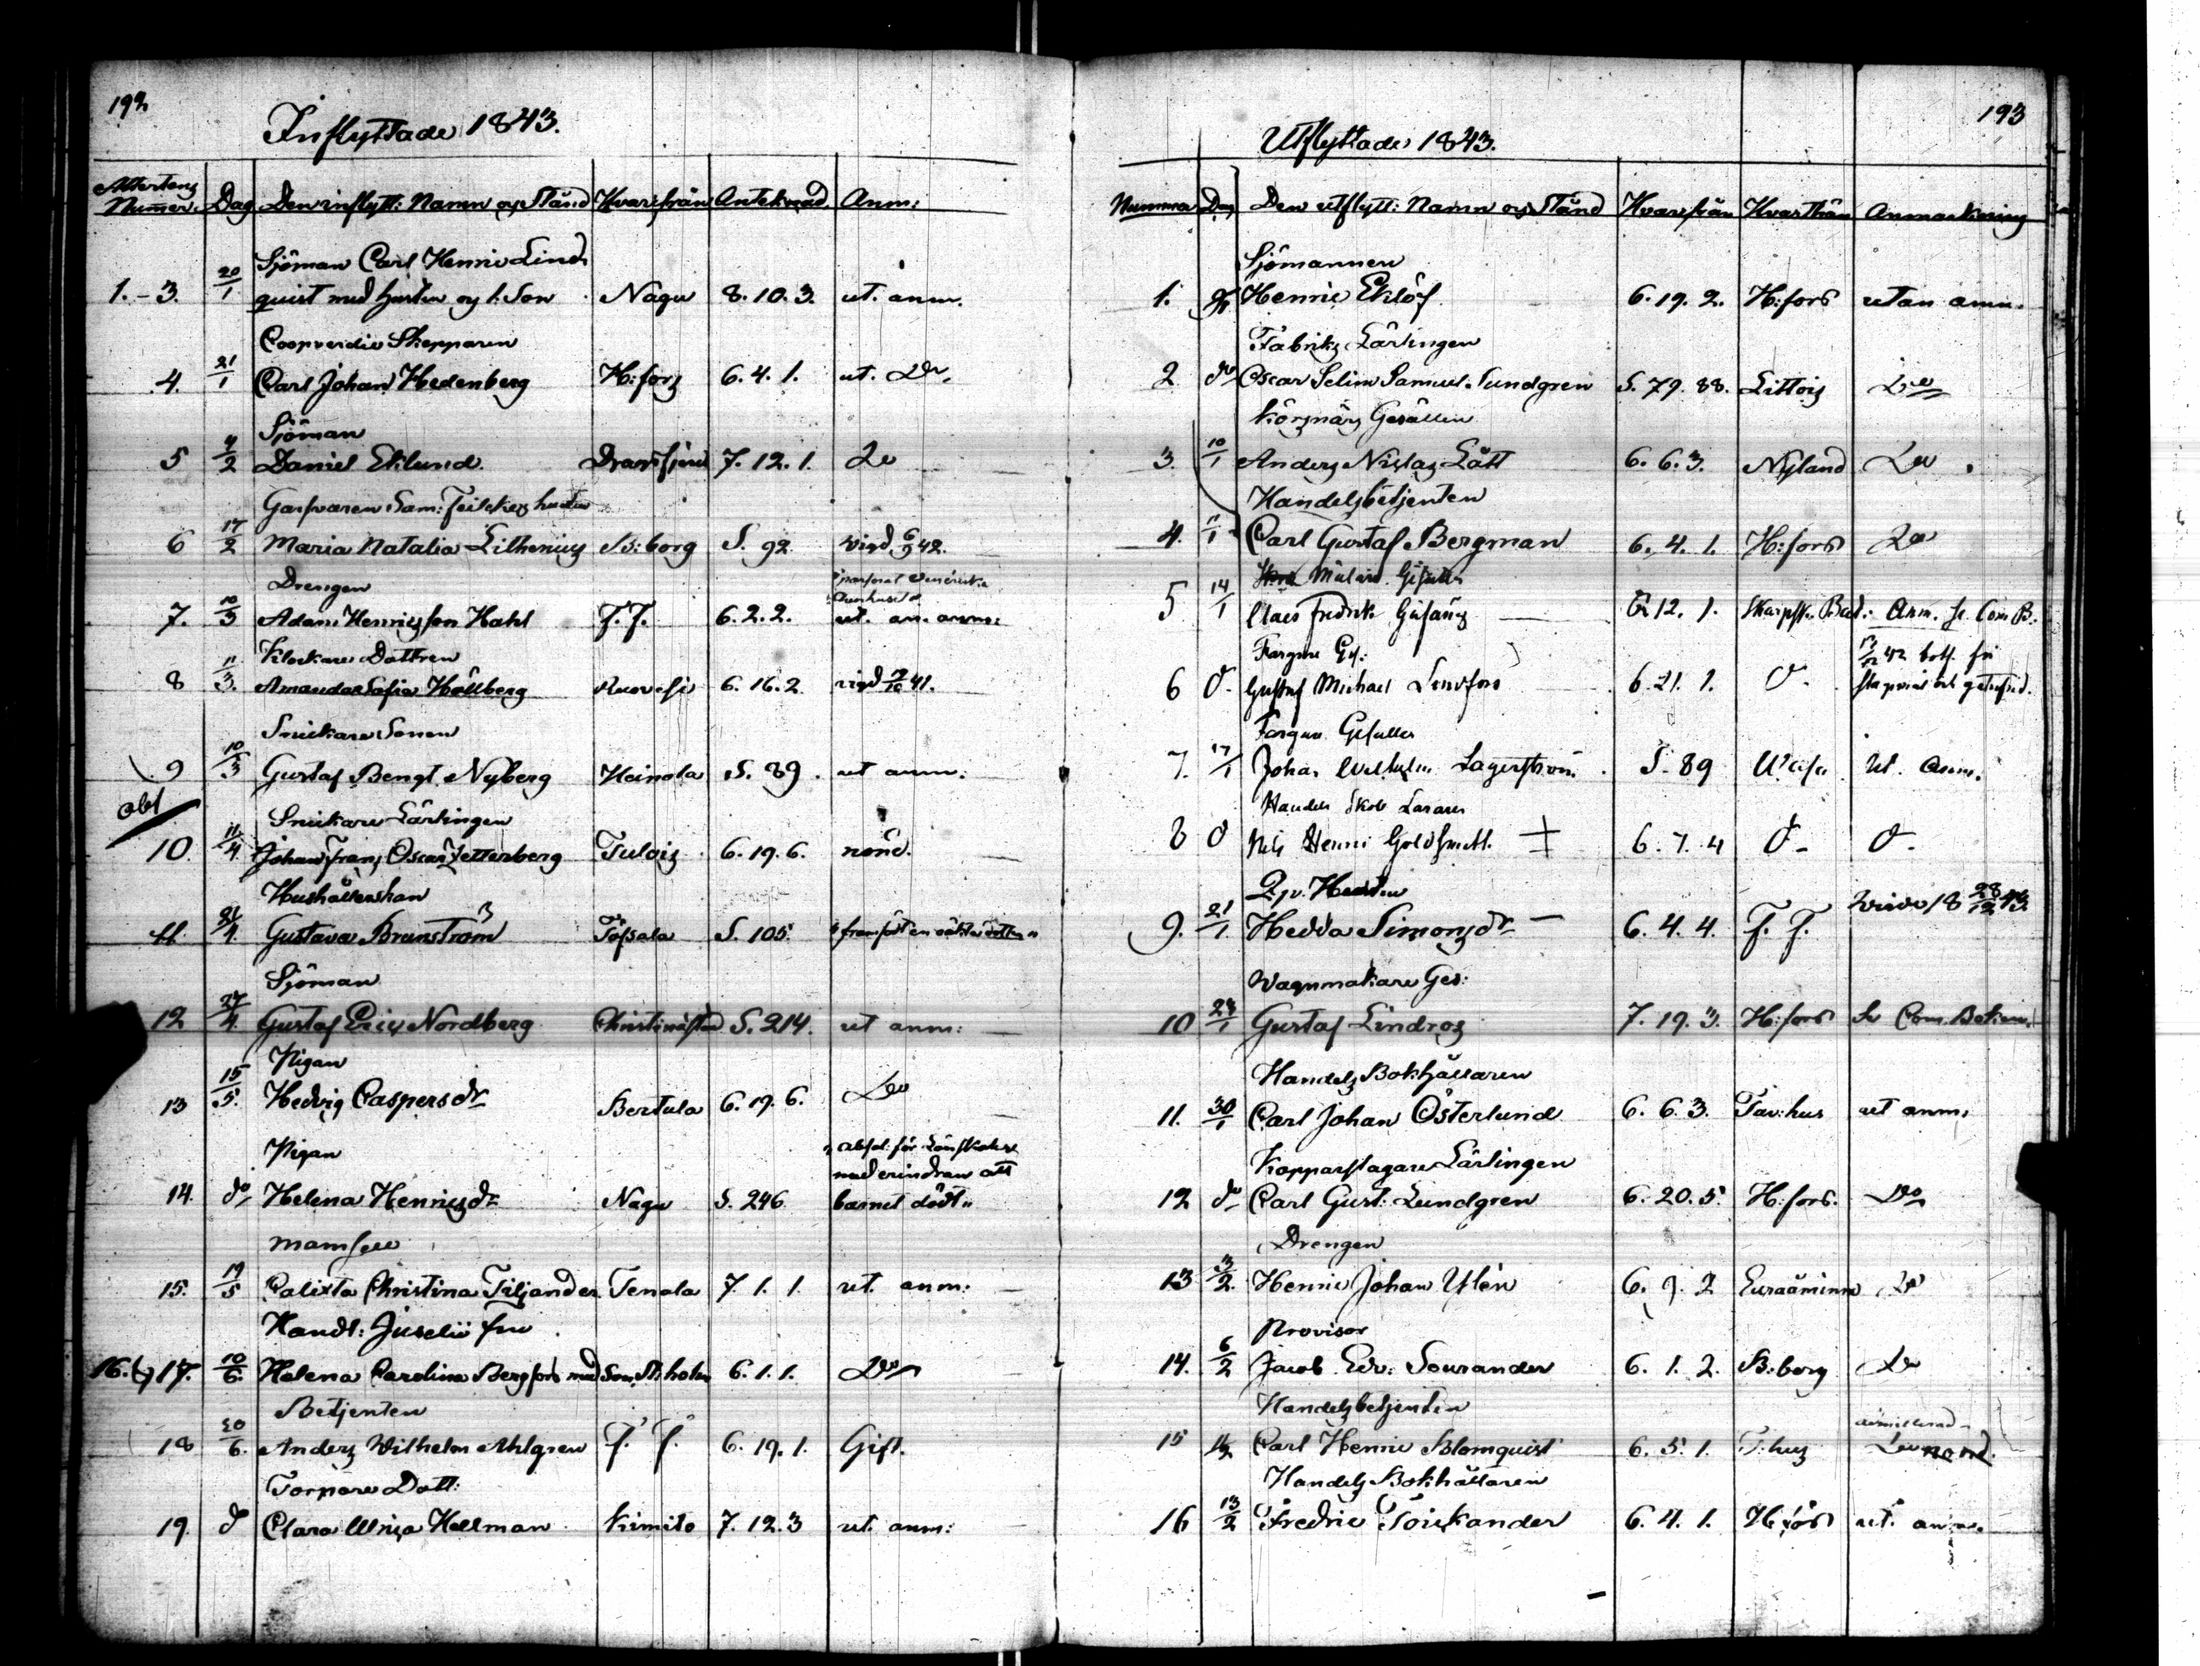 192
Inflyttade 1843.
Attestens Nummer. Dag Den inflytt: Namn og Stånd Hvarifrån Antecknad Anm:
Sjöman Carl Henric Lind-
1.-3. 20/1 quist med hustru og 1. Son Nagu 8. 10. 3. ut. anm.
Coopverdie Skepparen
4. 21/1 Carl Johan Hedenberg H:fors 6. 4. 1. ut. Do
Sjöman
5 4/2 Daniel Eklund 7. 12. 1. Do
Garfvaren Sam: hustru
6 17/2 Maria Natalia Lithenius B:borg S. 92 vigd 6/9 42.
Drengen
7. 10/3 Adam Henricsson Hahl F. F. 6. 2. 2. ut. an. anm:
Klockare Dottren
8 11/3. Amanda Sofia Hällberg Ruovesi 6. 16. 2 vigd 41.
Snickare Sonen
9 10/3 Gustaf Bengt Nyberg Heinola S. 89. ut anm:
obs
Snickare Lärlingen
10. 11/4. Johan Frans Oscar Zetterberg Tulois 6. 19. 6. nöd.
Hushållerskan
11. 21/4. Gustava Brunström Töfsala S. 105. framfödt en oäkta dotter
Sjöman
12 27/4. Gustaf Eric Nordberg Christinæstad S. 214. ut anm:
Pigan
13 15/5. Hedvig Caspersdr Bertula 6. 19. 6. Do
Pigan
absol. för Lönskaläge
med erindran att
14. do Helena Henricsdr Nagu S. 246 barnet dödt
Mamsell
15. 19/5 Calixta Christina Tiljander Tenala 7. 1. 1. ut. anm:
Handl: Juselii fru
16. og 17. 10/6. Helena Carolina Bergfors med Son St:holm 6. 1. 1. Do
Betjenten
18 20/6. Anders Wilhelm Ahlgren F. F. 6. 19. 1. Gift.
Torpare Dott:
19. do Clara Ulrica Hellman Kimito 7. 12. 3 ut. anm:
193
Utflyttade 1843.
Nummer Dag Den utflytt: Namn og Stånd Hvarifrån Hvarthän Anmärkning
Sjömannen
1. Henric Eklöf 6. 19. 2. H:fors utan anm.
Fabriks Lärlingen
2. do Oscar Selim Samuel Sundgren S. 79. 88. Littois Do
Körsnärs Gesällen
3. 10/1 Anders Niclas Lått 6. 6. 3. Nyland Do
Handelsbetjenten
4. 11/1 Carl Gustaf Bergman 6. 4. 1. H:fors Do
Målare Gesällen
5 14/1 Claes Fredrik 6. 12. 1. Skarpsk. Bat: Anm. se Com B.
Färgare Ges:
6 do Gustaf Michael Lindfors 6. 21. 1. do
Färgare Gesällen
7. 17/1 Johan Wilhelm Lagerström S. 89 Ut. Anm.
Handels Skole Läraren
8 do Nils Henric Goldsmitt 6. 7. 4 do do
Qv. Hustru
9. 21/1 Hedda Simonsdr 6. 4. 4. F. F.
Vagnmakare Ges:
10 23/1 Gustaf Lindros 7. 19. 3. H:fors Se Com. Betien.
Handels Bokhållaren
11. 30/1 Carl Johan Österlund 6. 6. 3. Tav:hus ut anm:
Kopparslagare Lärlingen
12 do Carl Gust: Lundgren 6. 20. 5. H:fors. Do
Drengen
13 3/2. Henric Johan Ylén 6. 9. 2 Euraåminne Do
Provisor
14. 6/2 Jacob Edv: Sourander 6. 1. 2. B:borg Do
Handelsbetjenten
15 Carl Henric Blomquist 6. 5. 1. T:hus Do nöd.
Handels Bokhållaren
16 13/2 Fredric Törckander 6. 4. 1. H:fors ut. anm.